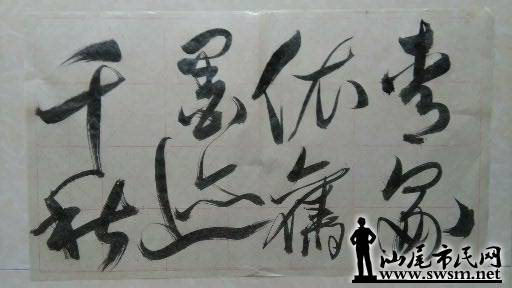 書家
依舊
墨迹
千秋
汕尾市民网
www.swsm.net